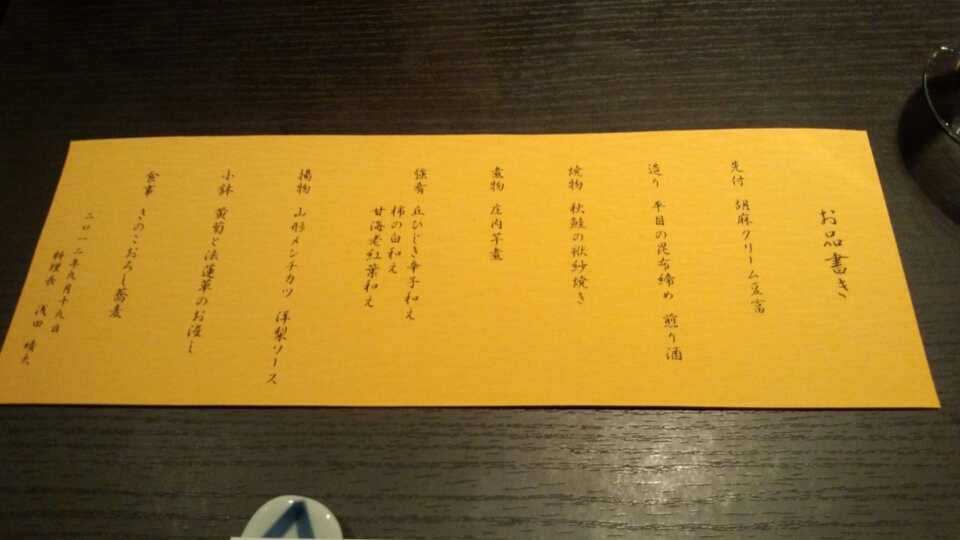 お品書き
先付 胡麻クリーム豆富
造り 平目の昆布締め 煎り酒
焼物 秋鮭の袱紗焼き
煮物 庄内芋煮
強肴 丘ひじき辛子和え
柿の白和え
甘海老紅葉和え
揚物 山形メンチカツ 洋梨ソース
小鉢 黄菊と法蓮草のお浸し
食事 きのこおろし蕎麦
二〇一二年九月十九日
料理長 浅田 晴夫